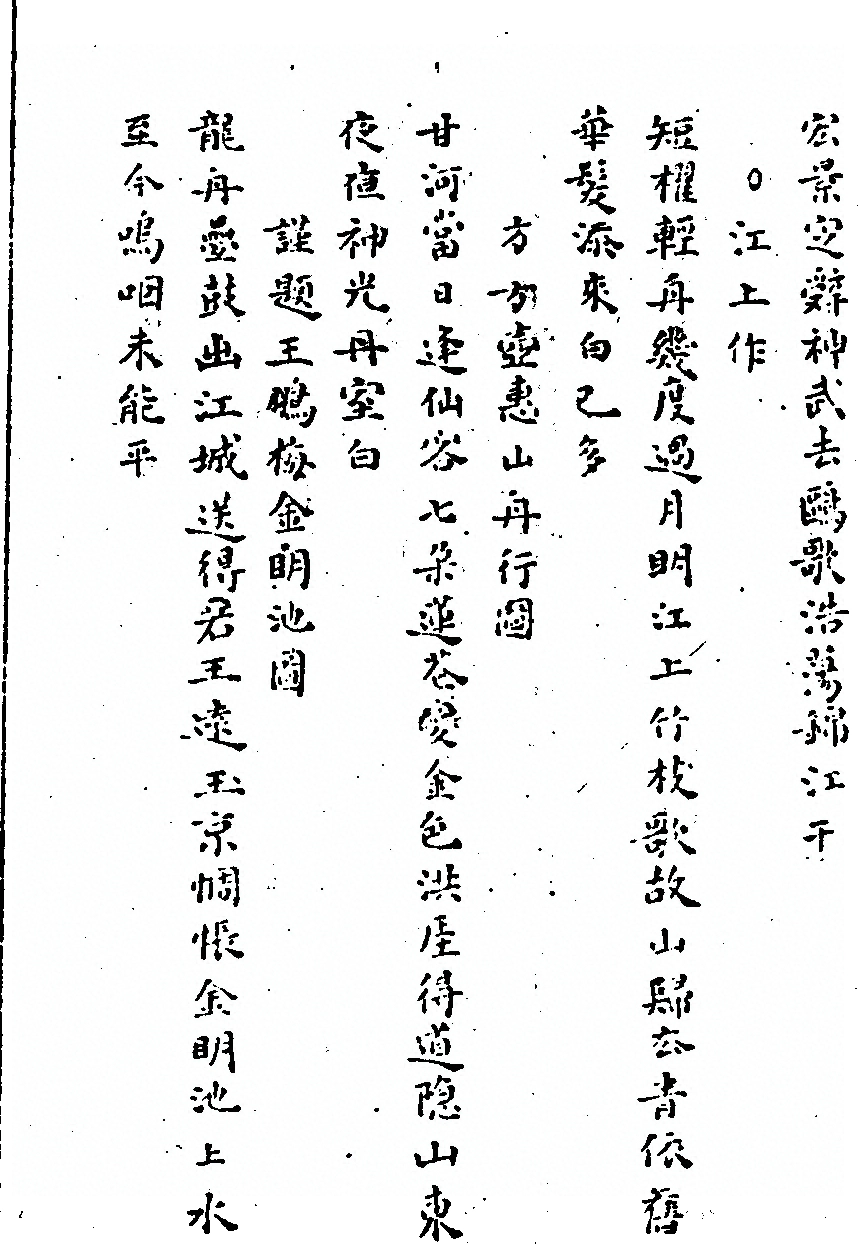 宏景定辭神武去鷗歌浩蕩錦江干
○江上作
短櫂輕舟幾度過月明江上竹枝歌故山歸去青依舊
華髮添來白已多
方方壺惠山舟行圖
甘河當日逢仙客七朵蓮花變金色洪崖得道隱山東
夜夜神光丹室白
謹題王鵬梅金明池圖
龍舟疊鼓出江城送得君王遠玉京惆悵金明池上水
至今嗚咽未能平